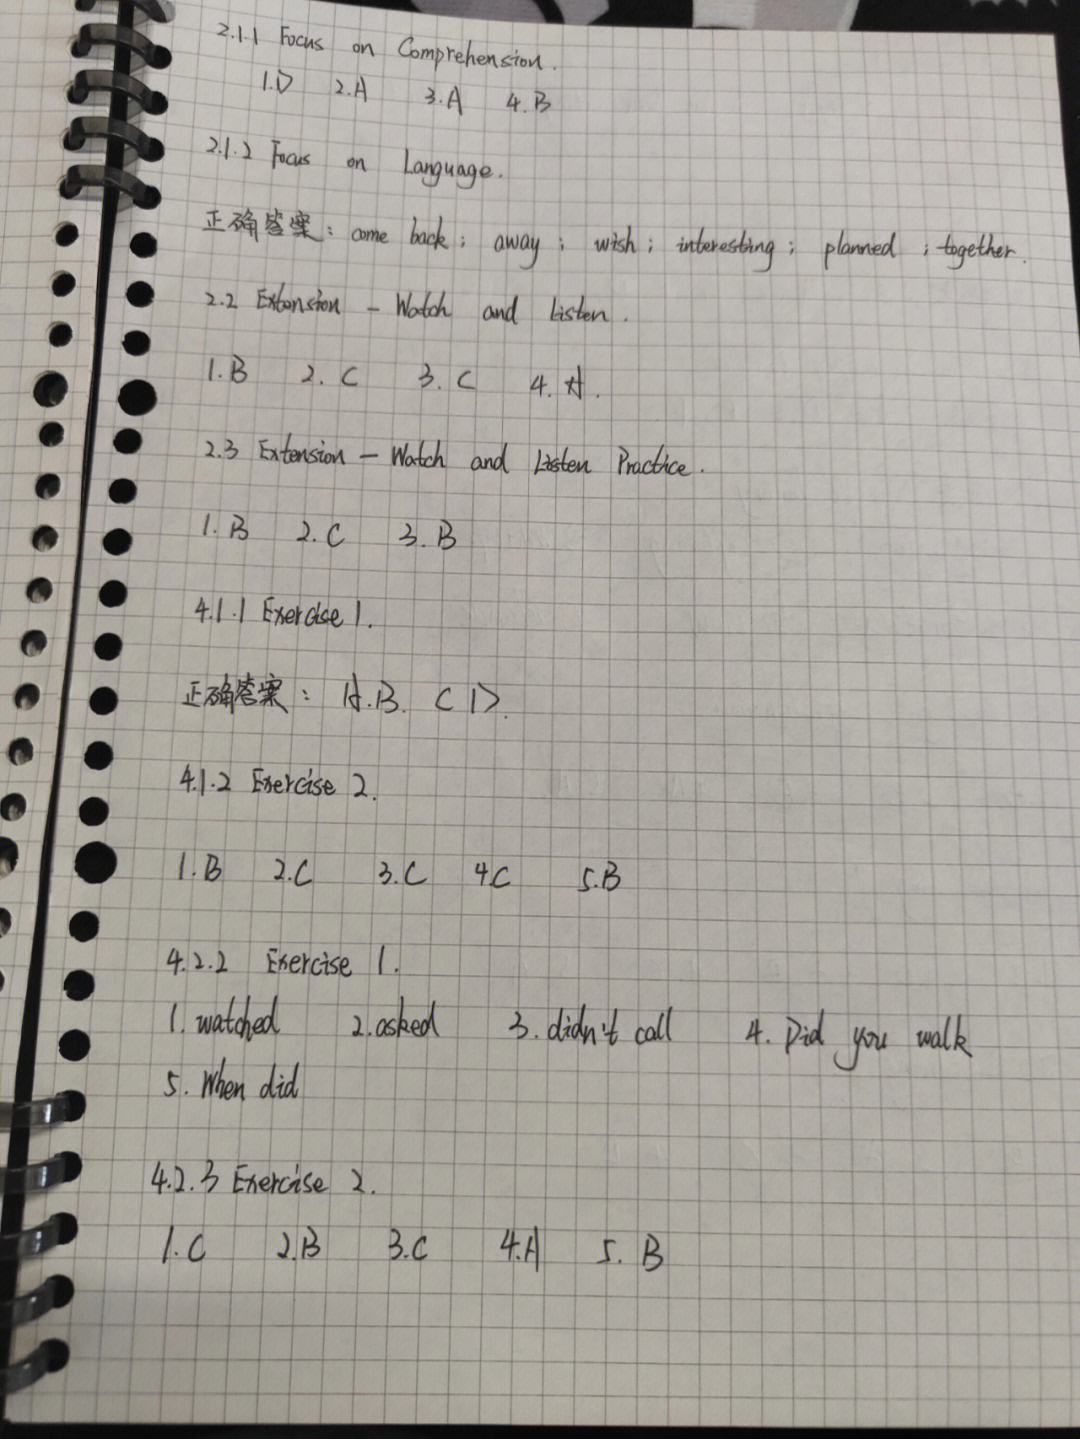 2.1.1 Focus on Comprehension.
1.D 2.A 3.A 4.B
2.1.2 Focus on Language.
正确答案: come back; away; wish; interesting; planned; together.
2.2 Extension - Watch and Listen.
1.B 2.C 3.C 4.A.
2.3 Extension - Watch and Listen Practice.
1.B 2.C 3.B
4.1.1 Exercise 1.
正确答案: A.B. C D.
4.1.2 Exercise 2.
1.B 2.C 3.C 4.C 5.B
4.2.2 Exercise 1.
1. watched 2. asked 3. didn't call 4. Did you walk
5. When did
4.2.3 Exercise 2.
1.C 2.B 3.C 4.A 5. B